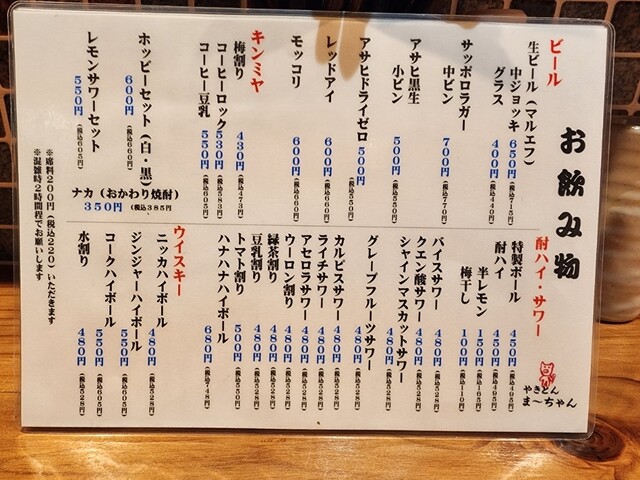 お飲み物
ビール
生ビール（マルエフ）
中ジョッキ 650円（税込715円）
グラス 400円（税込440円）
サッポロラガー
中ビン 700円（税込770円）
アサヒ黒生
小ビン 500円（税込550円）
アサヒドライゼロ 500円（税込550円）
レッドアイ 600円（税込660円）
モッコリ 600円（税込660円）
キンミヤ
梅割り 430円（税込473円）
コーヒーロック 530円（税込583円）
コーヒー豆乳 550円（税込605円）
ホッピーセット（白・黒） 600円（税込660円）
ナカ（おかわり焼酎） 350円（税込385円）
レモンサワーセット 550円（税込605円）
※席料200円（税込220）いただきます
※混雑時2時間程でお願いします
酎ハイ・サワー
特製ボール 450円（税込495円）
酎ハイ 450円（税込495円）
半レモン 150円（税込165円）
梅干し 100円（税込110円）
バイスサワー 480円（税込528円）
クエン酸サワー 480円（税込528円）
シャインマスカットサワー 480円（税込528円）
グレープフルーツサワー 480円（税込528円）
カルピスサワー 480円（税込528円）
ライチサワー 480円（税込528円）
アセロラサワー 480円（税込528円）
ウーロン割り 480円（税込528円）
緑茶割り 480円（税込528円）
豆乳割り 480円（税込528円）
トマト割り 500円（税込550円）
ハナハナハイボール 680円（税込748円）
ウイスキー
ニッカハイボール 480円（税込528円）
ジンジャーハイボール 550円（税込605円）
コークハイボール 550円（税込605円）
水割り 480円（税込528円）
やきとん
ま〜ちゃん